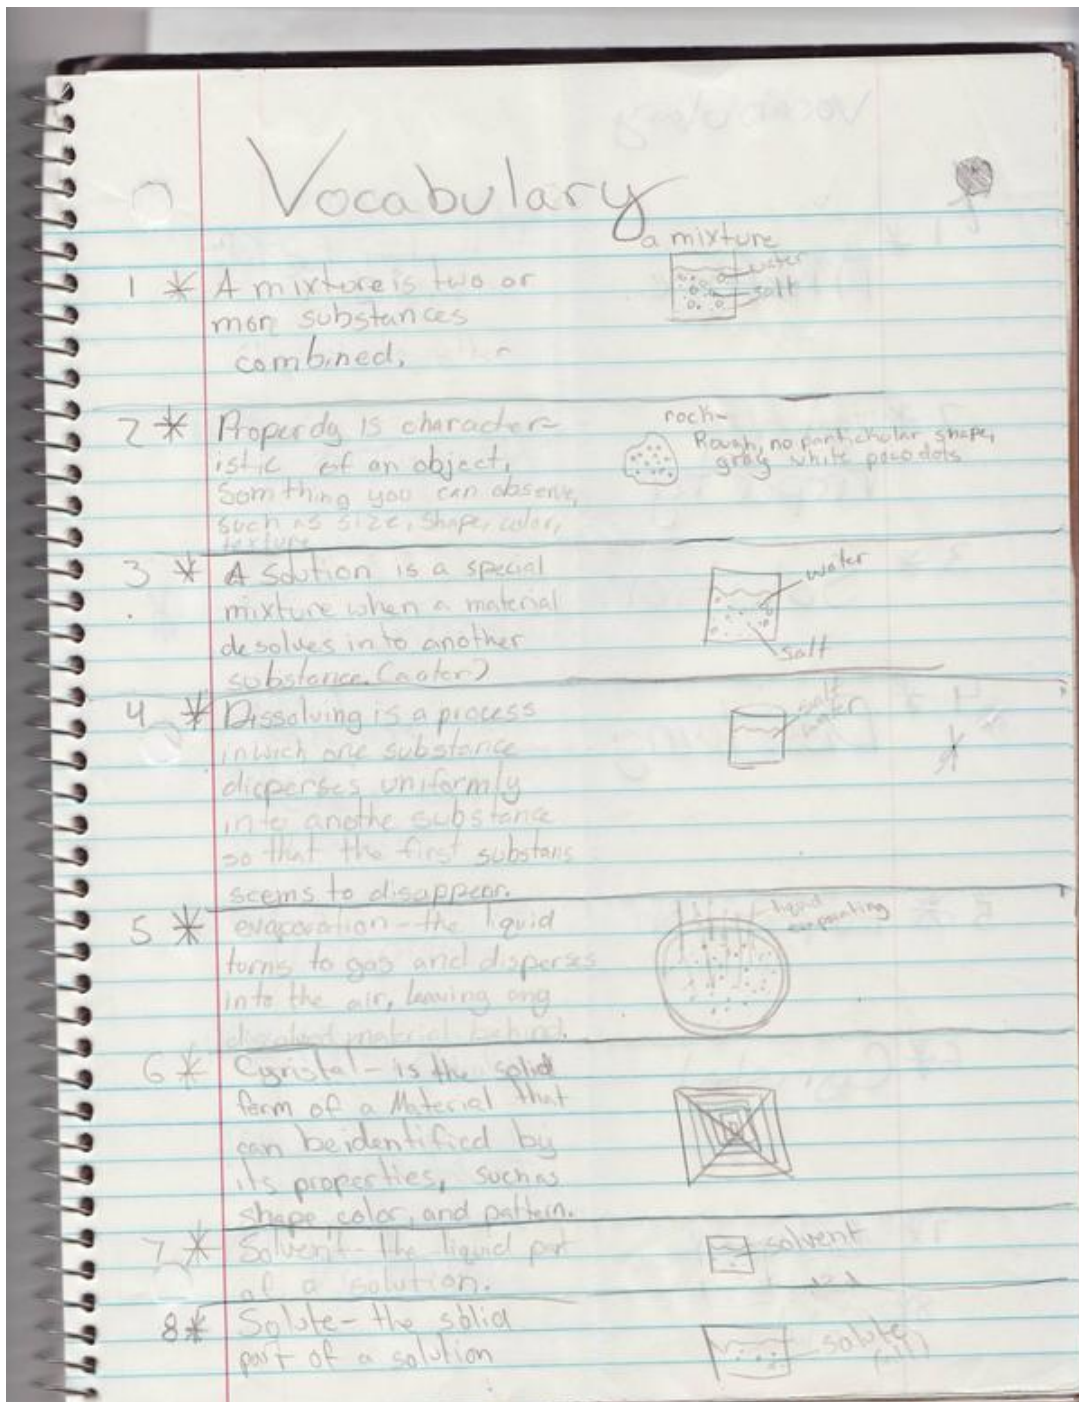 Vocabulary
a mixture
water
salt
1 * A mixture is two or
mor substances
combined.
2 * Properdy is character-
istic of an object,
Somthing you can observe,
such as size, shape, color,
texture
rock-
Rough, no partichular shape,
gray white polodots
3 * A Solution is a special
mixture when a material
desolves in to another
substance. (water)
water
salt
4 * Dissolving is a process
inwich one substance
dicperses uniformly
into anothe substance
so that the first substans
seems to disappear.
salt
5 * evaporation - the liquid
turns to gas and disperses
into the air, leaving any
dissolved material behind.
liquid
6 * Cyristal - is the solid
form of a Material that
can beidentified by
its properties, such as
shape, color, and pattern.
7 * Solvent - the liquid part
of a solution.
solvent
8 * Solute - the solid
part of a solution
solute